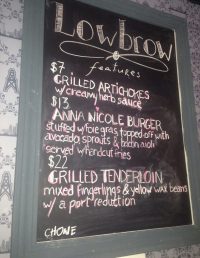 Lowbrow
features
$7
GRILLED ARTICHOKES
w/ creamy herb sauce
$13
ANNA NICOLE BURGER
stuffed w/ foie gras, topped off with
avocado, sprouts & bacon aioli
served w/ handcut fries
$22
GRILLED TENDERLOIN
mixed fingerlings & yellow wax beans
w/ a port reduction